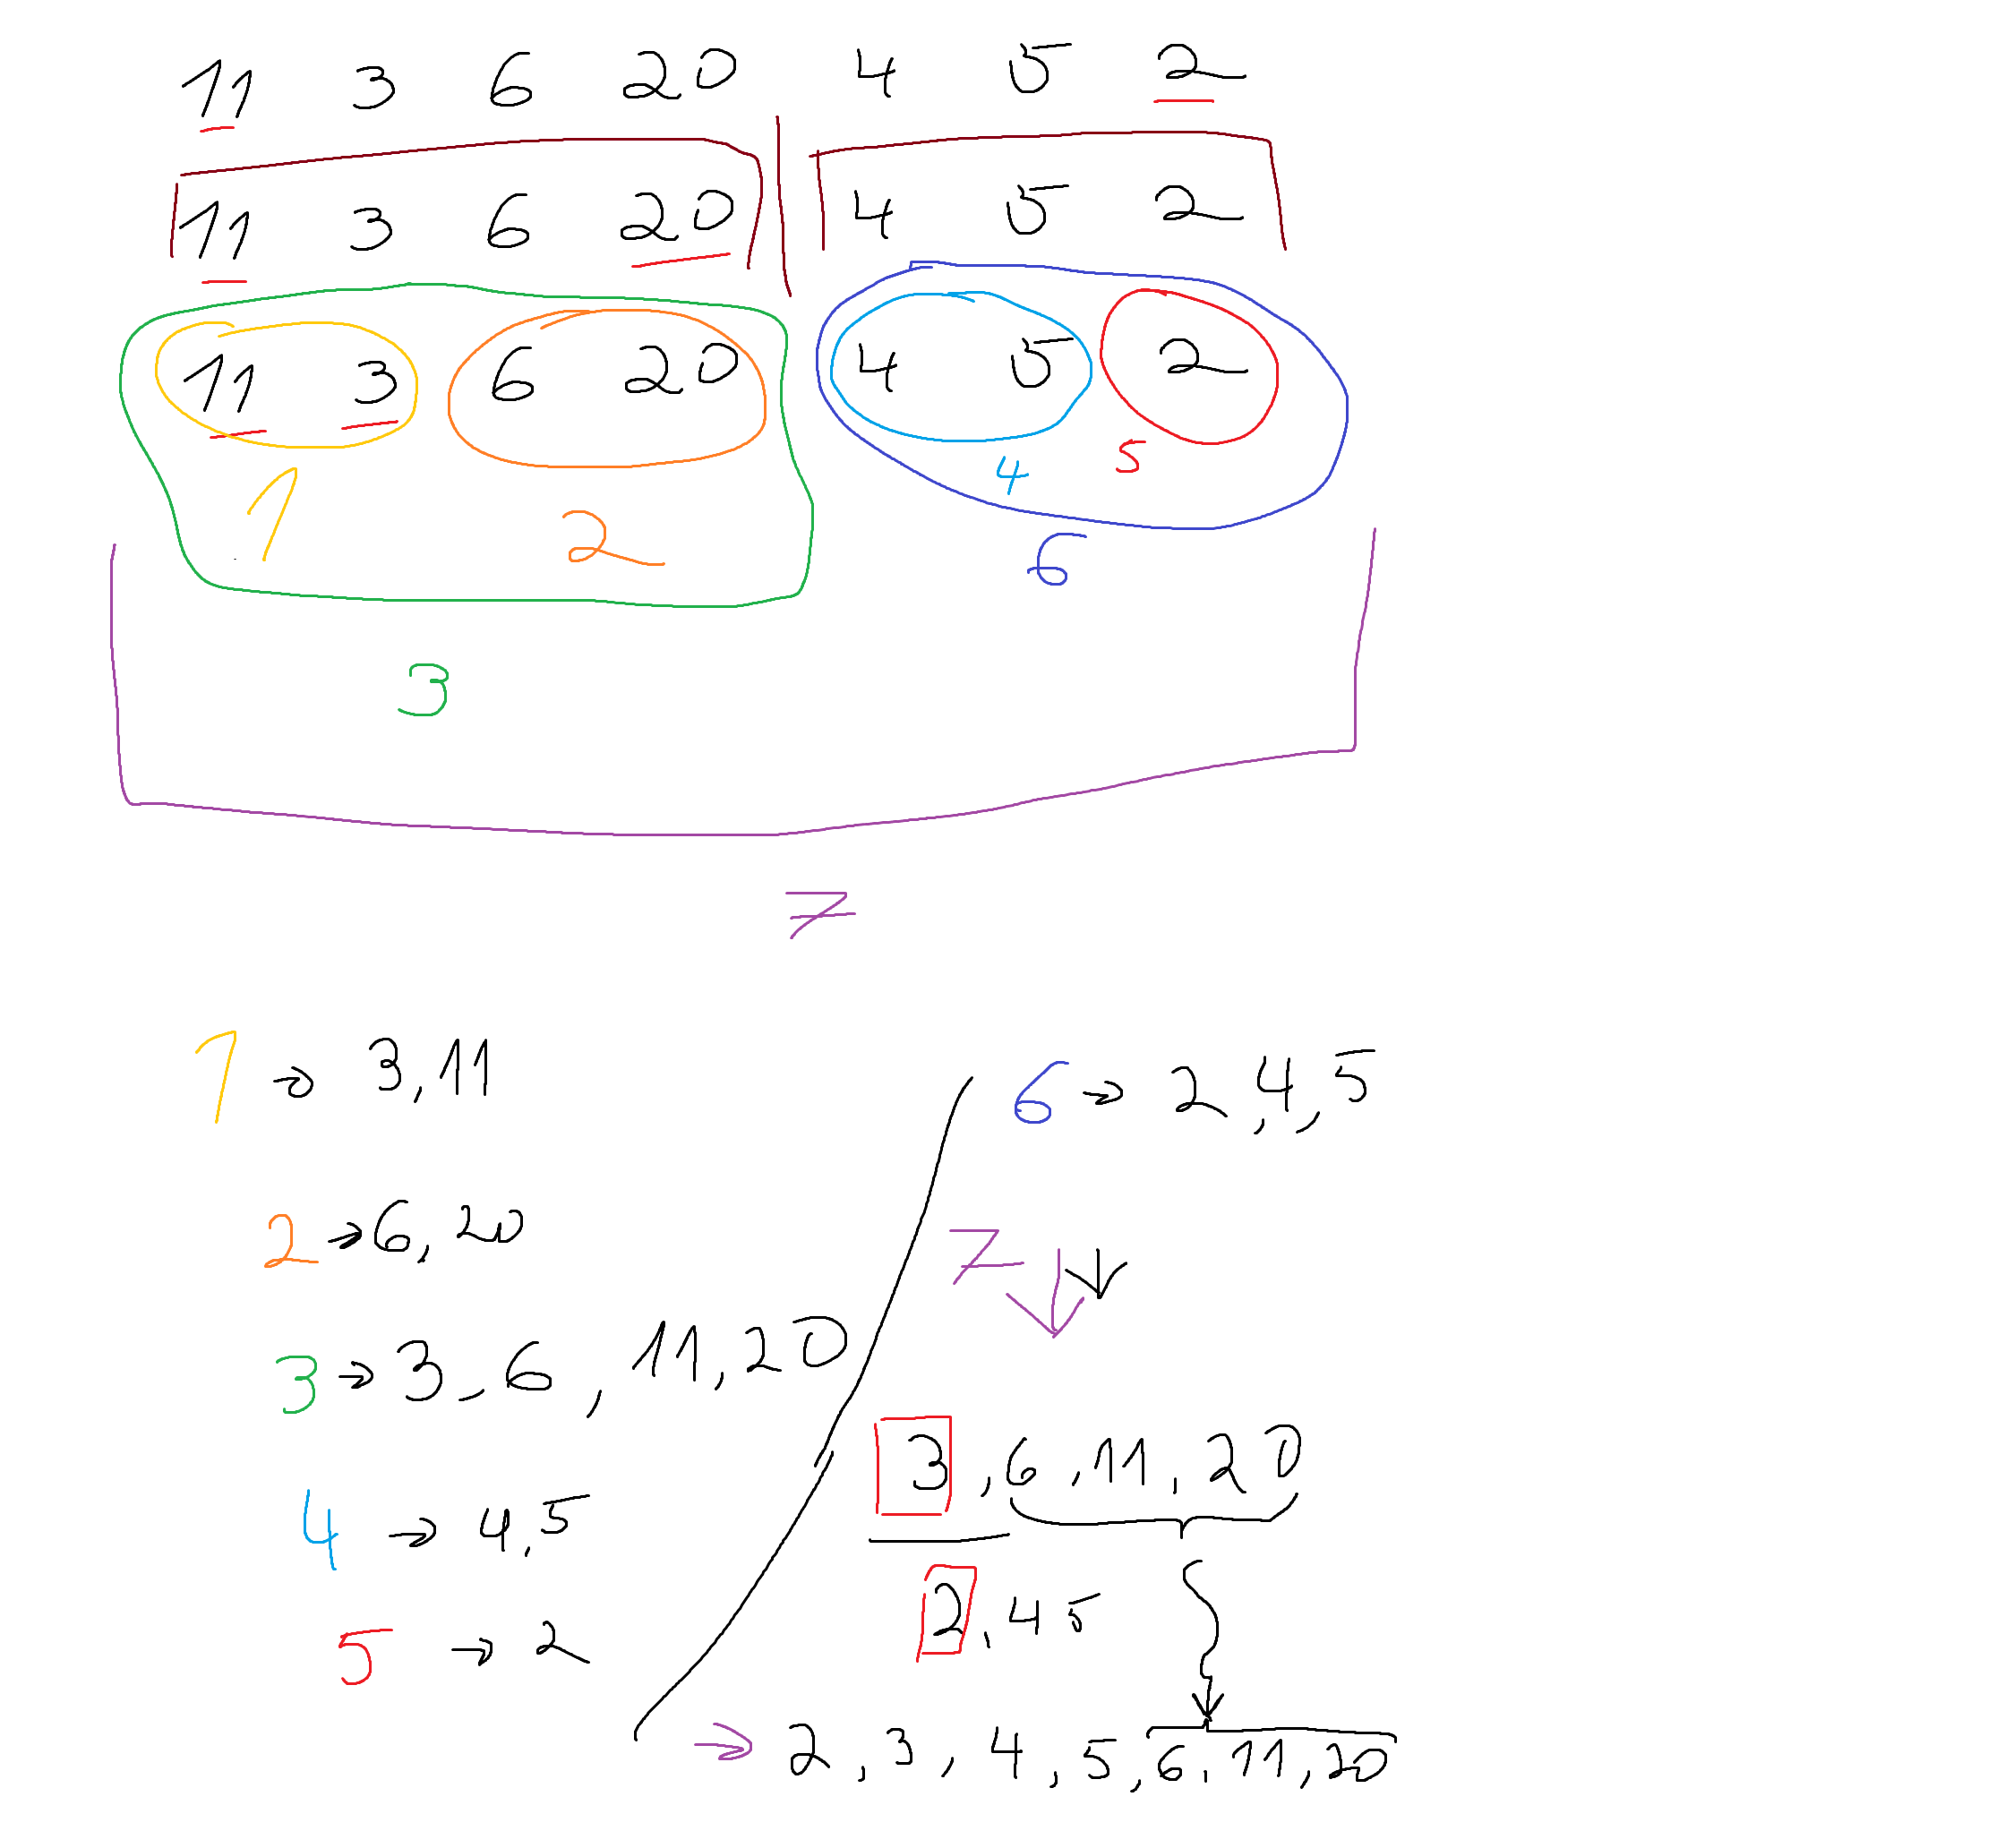 11 3 6 20 4 5 2
11 3 6 20 4 5 2
11 3 6 20 4 5 2
4 5
1 2 6
3
7
1 → 3, 11
2 → 6, 20
3 → 3, 6, 11, 20
4 → 4, 5
5 → 2
6 → 2, 4, 5
7 ↓ ↓
3, 6, 11, 20
2, 4 5
→ 2, 3, 4, 5, 6, 11, 20